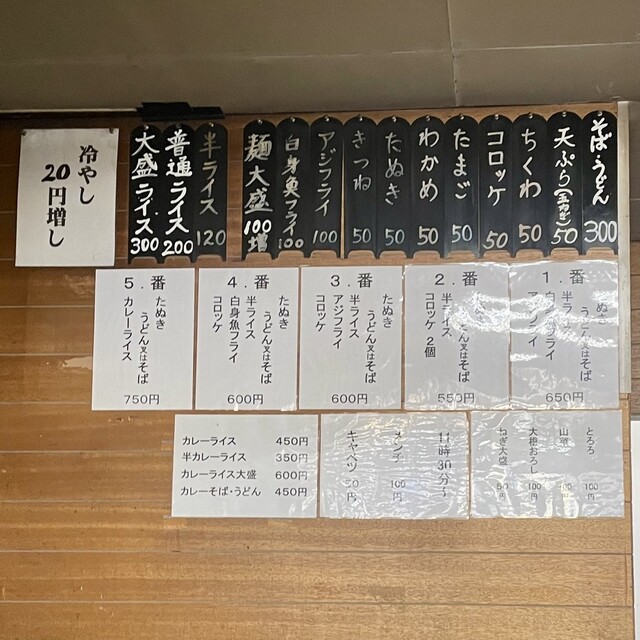 そば・うどん 300
天ぷら(玉ねぎ) 50
ちくわ 50
コロッケ 50
たまご 50
わかめ 50
たぬき 50
きつね 50
アジフライ 100
白身魚フライ 100
麺大盛 100増
半ライス 120
普通ライス 200
大盛ライス 300
冷やし
20円増し
1.番
たぬき
うどん又はそば
半ライス
白身魚フライ
アジフライ
650円
2.番
たぬき
うどん又はそば
半ライス
コロッケ 2個
550円
3.番
たぬき
うどん又はそば
半ライス
アジフライ
コロッケ
600円
4.番
たぬき
うどん又はそば
半ライス
白身魚フライ
コロッケ
600円
5.番
たぬき
うどん又はそば
カレーライス
750円
カレーライス 450円
半カレーライス 350円
カレーライス大盛 600円
カレーそば・うどん 450円
11時30分〜
メンチ 100円
キャベツ 50円
とろろ 100円
山菜 100円
大根おろし 100円
ねぎ大盛 50円